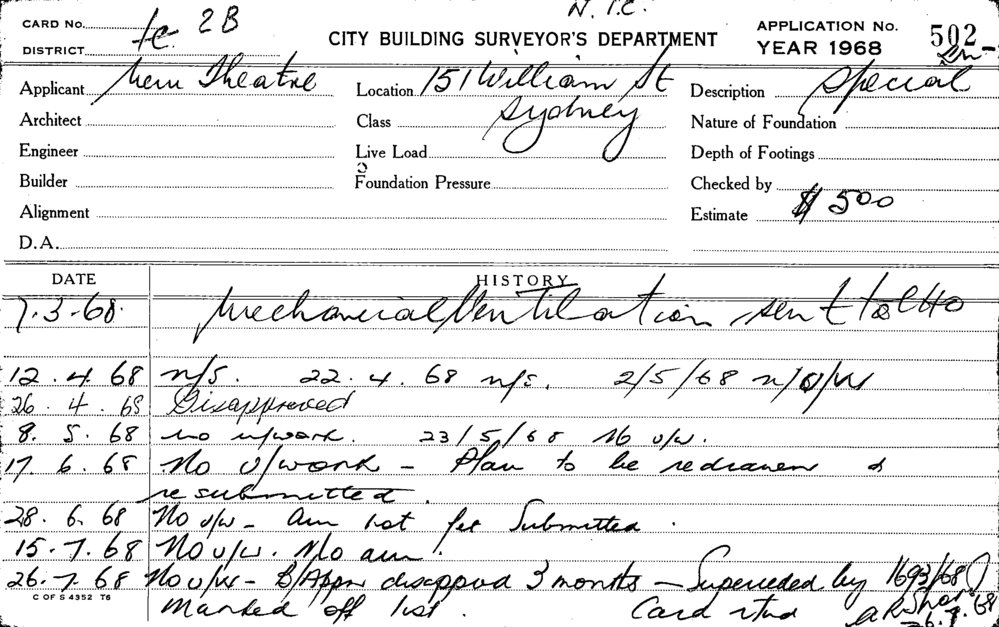 N.I.C.
CARD No. tc 2B
CITY BUILDING SURVEYOR'S DEPARTMENT
APPLICATION No. 502
DISTRICT
YEAR 1968
Applicant New Theatre
Location 151 William St
Description Special
Architect
Class Sydney
Nature of Foundation
Engineer
Live Load
Depth of Footings
Builder
Foundation Pressure
Checked by
Alignment
Estimate $ 500
D.A.
DATE HISTORY
7.3.68. Mechanical Ventilation sent to CHO
12.4.68 n/s. 22.4.68 n/s. 2/5/68 n/U/W
26.4.68 Disapproved
8.5.68 no u/work. 23/5/68 No u/w.
17.6.68 No u/work – Plan to be redrawn &
resubmitted.
28.6.68 No u/w – Am not yet Submitted.
15.7.68 No u/w. N/o am.
26.7.68 No u/w – B/Appn disappvd 3 months – Superceded by 1693/68
C OF S 4352 T6
Marked off list. Card rtnd
26.7.68